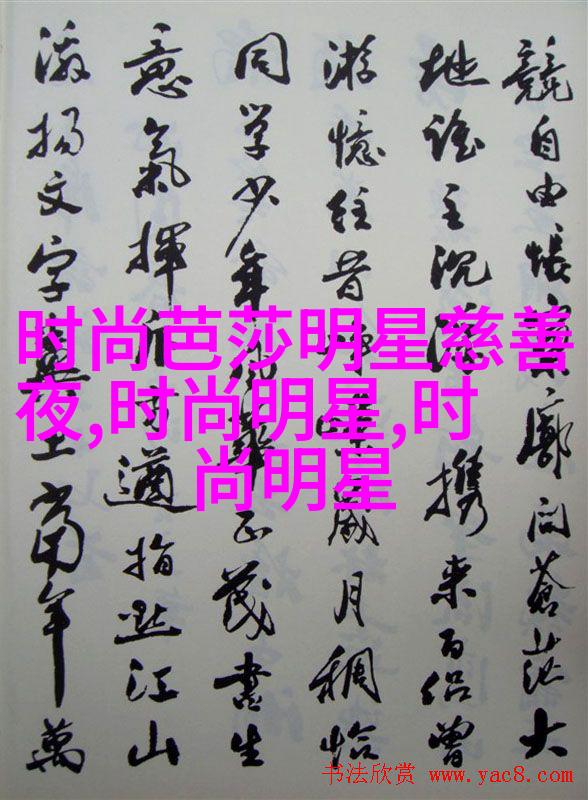 競自由悵寥廓问蒼茫大
地谁主沉浮携来百侣曾
游憶往昔峥嵘歲月稠恰
同学少年风華正茂書生
意氣揮斥方遒指點江山
激揚文字糞土当年萬
时尚芭莎明星慈善
夜,时尚明星,时
尚明星
书法欣赏 www.yac8.com